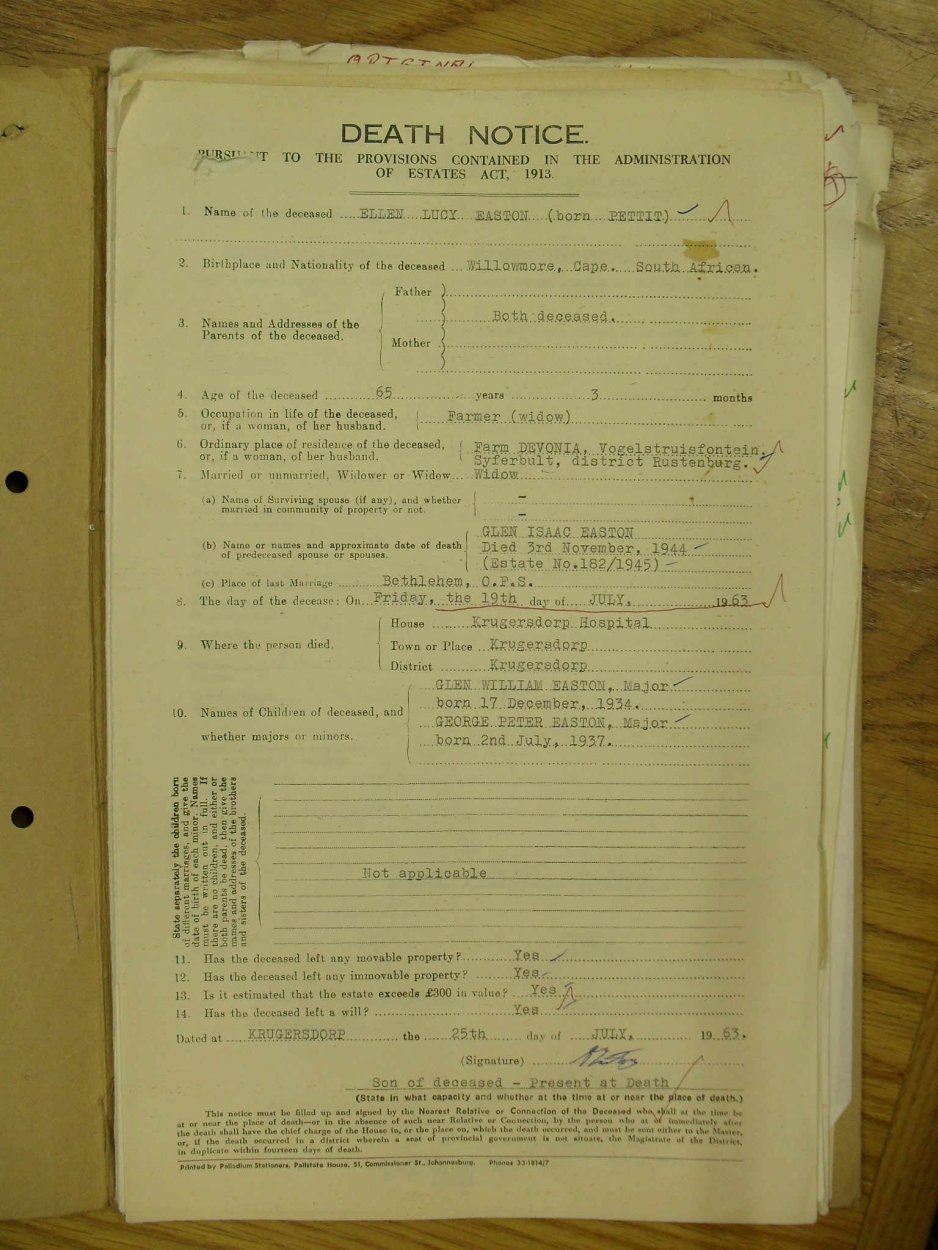 DEATH NOTICE.
TO THE PROVISIONS CONTAINED IN THE ADMINISTRATION
OF ESTATES ACT, 1913.
1. Name of the deceased ELLEN LUCY EASTON (born PETTIT)
2. Birthplace and Nationality of the deceased Willowmore, Cape. South African.
Father
3. Names and Addresses of the Parents of the deceased. Both deceased.
Mother
4. Age of the deceased 65 years 3 months
5. Occupation in life of the deceased, or, if a woman, of her husband. Farmer (widow)
6. Ordinary place of residence of the deceased, Farm DEVONIA, Vogelstruisfontein,
or, if a woman, of her husband. Syferbult, district Rustenburg.
7. Married or unmarried, Widower or Widow Widow
(a) Name of Surviving spouse (if any), and whether –
married in community of property or not. –
GLEN ISAAC EASTON
(b) Name or names and approximate date of death Died 3rd November, 1944
of predeceased spouse or spouses. (Estate No.182/1945)
(c) Place of last Marriage Bethlehem, O.F.S.
8. The day of the decease: On Friday, the 19th day of JULY, 1963
House Krugersdorp Hospital
9. Where the person died. Town or Place Krugersdorp
District Krugersdorp
GLEN WILLIAM EASTON, Major
born 17 December, 1934.
10. Names of Children of deceased, and GEORGE PETER EASTON, Major
whether majors or minors. born 2nd July, 1937.
State separately the children born
of different marriages, and give the
date of birth of each minor. Names
must be written out in full. If
there are no children, and either or
both parents be dead, then give the
names and addresses of the brothers
and sisters of the deceased.
Not applicable
11. Has the deceased left any movable property? Yes
12. Has the deceased left any immovable property? Yes
13. Is it estimated that the estate exceeds £300 in value? Yes
14. Has the deceased left a will? Yes
Dated at KRUGERSDORP the 25th day of JULY, 1963.
(Signature)
Son of deceased – Present at Death
(State in what capacity and whether at the time at or near the place of death.)
This notice must be filled up and signed by the Nearest Relative or Connection of the Deceased who shall at the time be
at or near the place of death—or in the absence of such near Relative or Connection, by the person who at or immediately after
the death shall have the chief charge of the House in, or the place on, which the death occurred, and must be sent either to the Master,
or, if the death occurred in a district wherein a seat of provincial government is not situate, the Magistrate of the District,
in duplicate within fourteen days of death.
Printed by Palladium Stationers, Palistate House, 51, Commissioner St., Johannesburg. Phones 33-1814/7